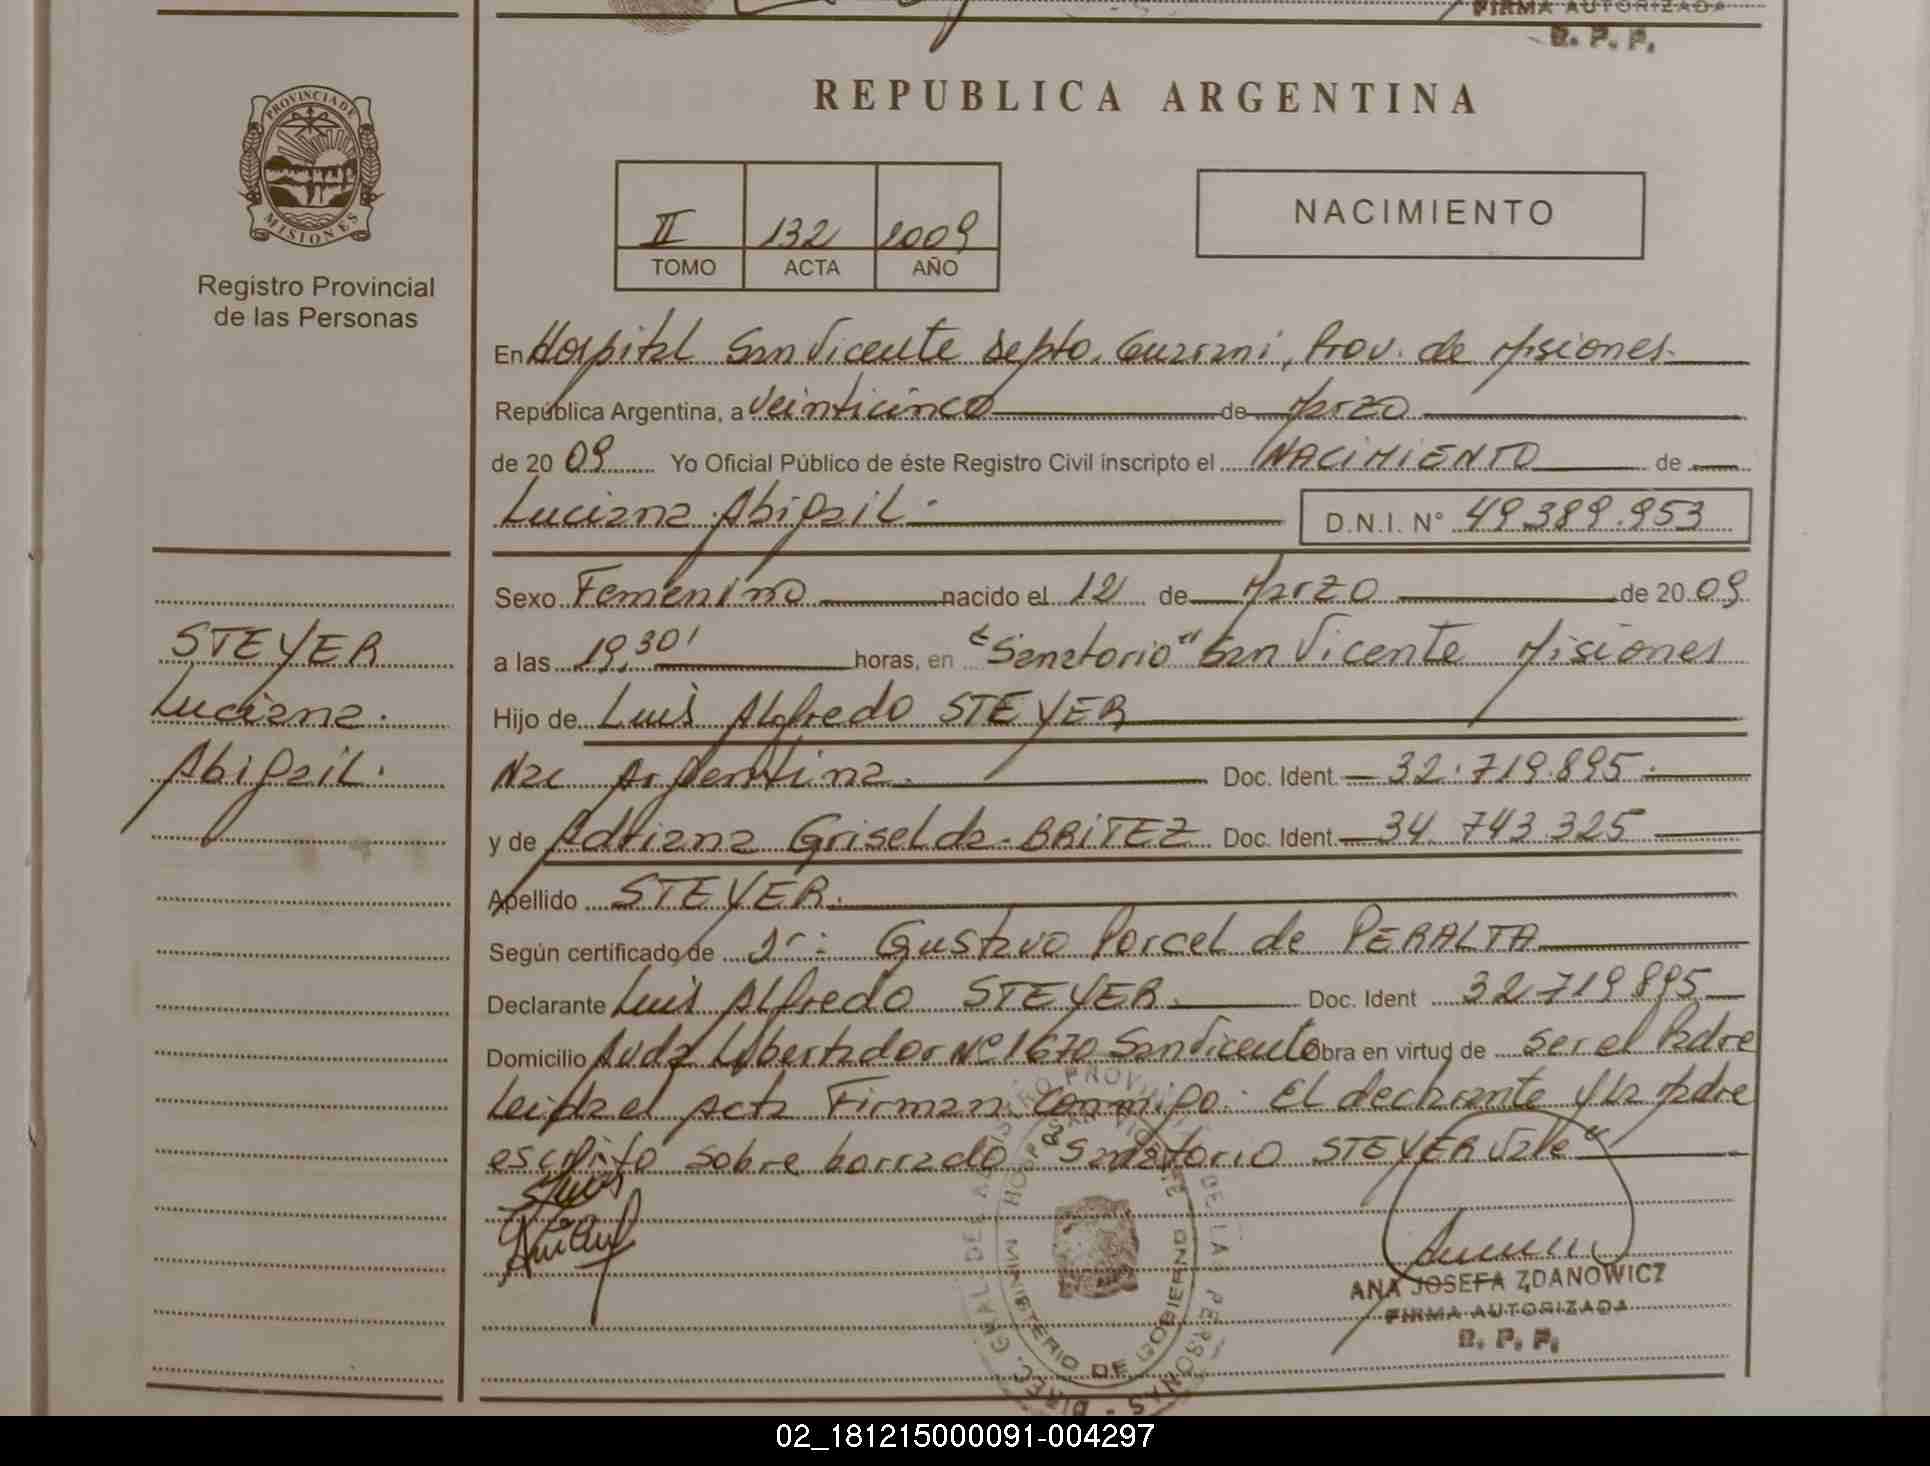 FIRMA AUTORIZADA
R. P. P.
PROVINCIA DE
MISIONES
Registro Provincial
de las Personas
REPUBLICA ARGENTINA
II 132 2009
TOMO ACTA AÑO
NACIMIENTO
En Hospital San Vicente Depto. Guarani, Prov. de Misiones.
República Argentina, a veinticinco de Marzo
de 20 09 Yo Oficial Público de éste Registro Civil inscripto el NACIMIENTO de
Luciana Abigail. D.N.I. N° 49.389.953
Sexo Femenino nacido el 12 de Marzo de 20 09
a las 19,30' horas, en "Sanatorio" San Vicente Misiones
Hijo de Luis Alfredo STEYER
Nac Argentina. Doc. Ident. 32.719.895.
y de Adriana Griselda BRITEZ Doc. Ident. 34.743.325
Apellido STEYER.
Según certificado de Dr: Gustavo Porcel de PERALTA
Declarante Luis Alfredo STEYER. Doc. Ident 32.719.895
Domicilio Avda Libertador Nº 1670 San Vicente Obra en virtud de ser el Padre
Leida el Acta Firman conmigo. El declarante y la Madre
escrito sobre borrado "Sanatorio STEYER vale"
STEYER
Luciana.
Abigail.
DIREC. GRAL. DE REGISTRO PROVINCIAL DE LAS PERSONAS
MINISTERIO DE GOBIERNO
ANA JOSEFA ZDANOWICZ
FIRMA AUTORIZADA
R. P. P.
02_181215000091-004297